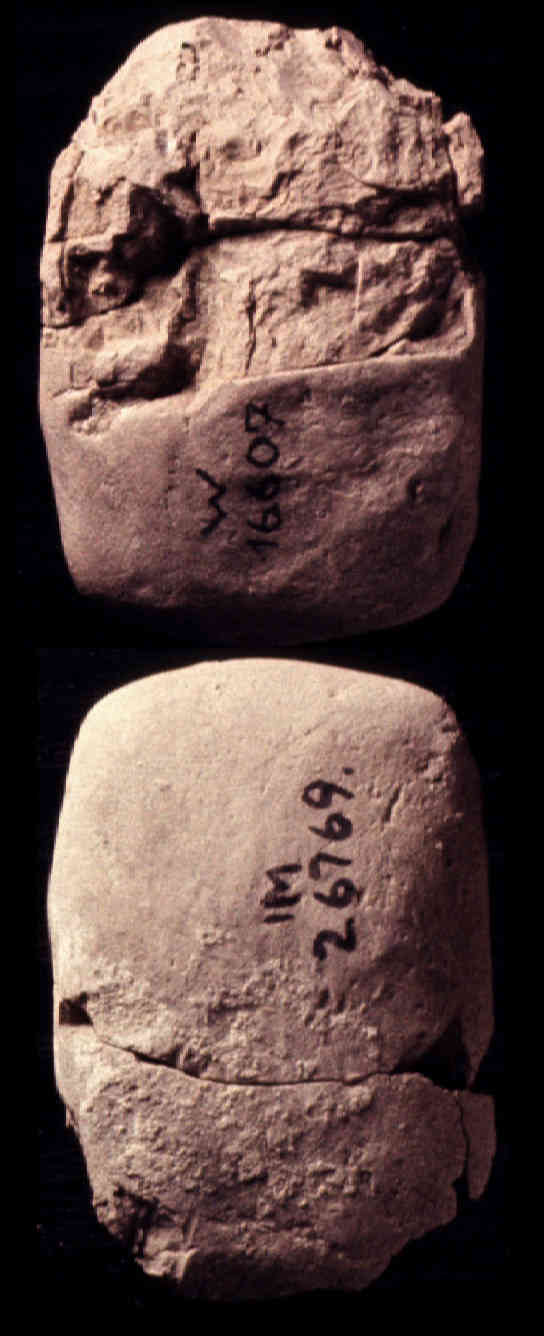 W
16607
IM
26769.